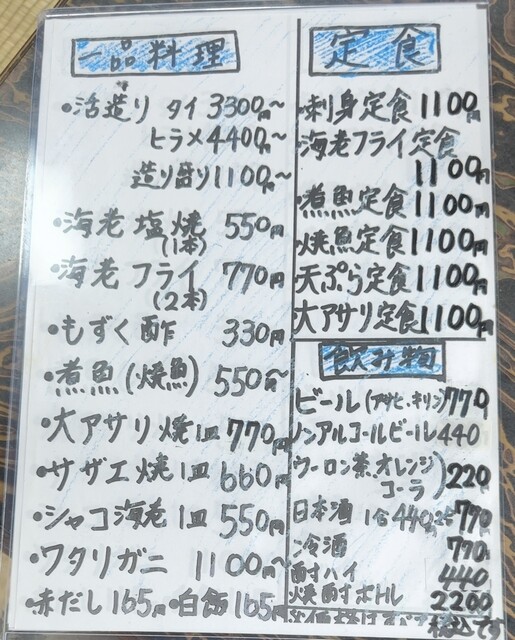 一品料理
・活造り タイ 3300円~
ヒラメ 4400円~
造り盛り 1100円~
・海老塩焼 550円
(1本)
・海老フライ 770円
(2本)
・もずく酢 330円
・煮魚(焼魚) 550円~
・大アサリ焼1皿 770円
・サザエ焼1皿 660円
・シャコ海老1皿 550円
・ワタリガニ 1100円~
・赤だし 165円 ・白飯 165円
定食
・刺身定食 1100円
・海老フライ定食
1100円
・煮魚定食 1100円
・焼魚定食 1100円
・天ぷら定食 1100円
大アサリ定食 1100円
飲み物
ビール(アサヒ、キリン) 770
ノンアルコールビール 440
ウーロン茶、オレンジ
コーラ) 220
日本酒 1合 440, 2合 770
冷酒 770
酎ハイ 440
焼酎ボトル 2200
税込です